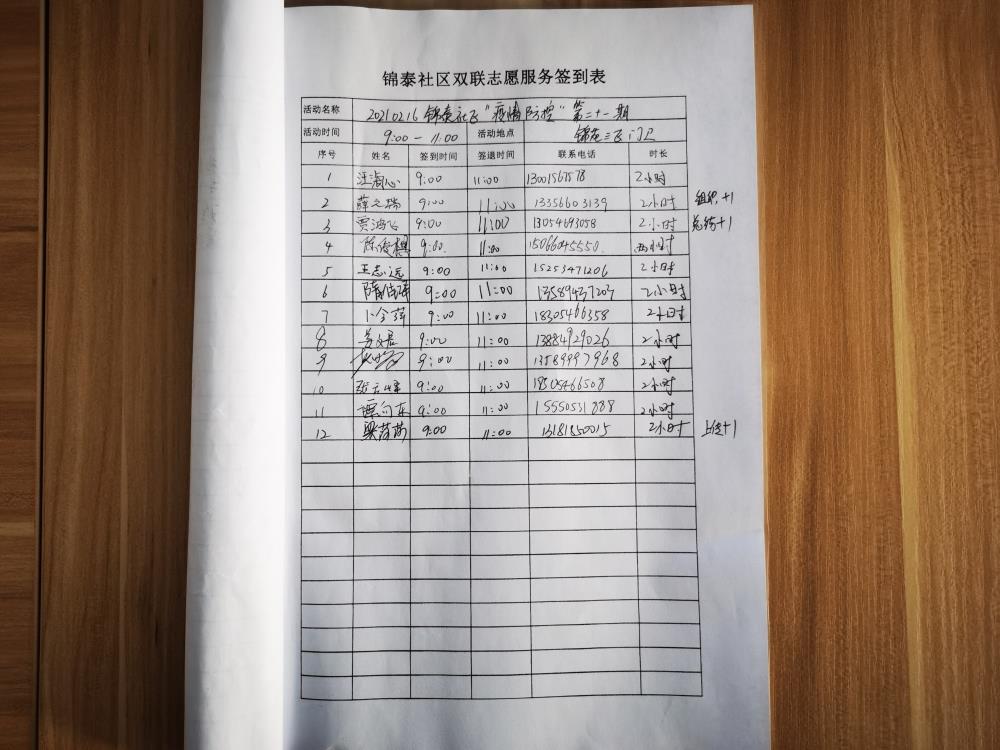 锦泰社区双联志愿服务签到表
活动名称 20210216锦泰社区"疫情防控"第二十一期
活动时间 9:00-11:00 活动地点 锦苑三区门卫
序号 姓名 签到时间 签退时间 联系电话 时长
1 汪淑心 9:00 11:00 13001567578 2小时
2 薛之瑞 9:00 11:00 13356603139 2小时 组织+1
3 贾鸿飞 9:00 11:00 13054693058 2小时 总结+1
4 陈俊棋 9:00 11:00 15066045550 两小时
5 王志远 9:00 11:00 15253471206 2小时
6 9:00 11:00 13589437203 2小时
7 卜令萍 9:00 11:00 18305466358 2小时
8 9:00 11:00 13884929026 2小时
9 9:00 11:00 13589997968 2小时
10 9:00 11:00 18305466508 2小时
11 9:00 11:00 15550531888 2小时
12 9:00 11:00 13181850015 2小时 上传+1